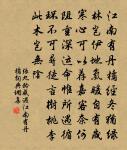 江南有丹橘經冬猶綠
林豈伊地氣暖自有歲
寒心可以薦嘉客奈何
阻重深運命惟所遇循
環不可尋徒言樹桃李
此木豈無陰
張九齡感遇江南有丹
橘